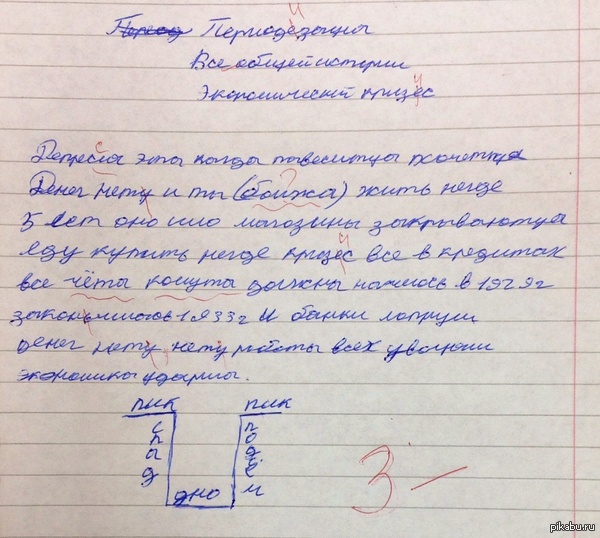 Периодезацыя
Все общей истории
Экономический кризес
Депресия эта когды повеситцы хочетца
Денег нету и ты (бомжа) жить негде
5 лет оно шло магазины закрываютца
яду купить негде кризес все в кредитах
все чёты кошута должны началось в 1929г
закончилось 1933г и банки лопнули
денег нету нету работы всех уволили
экономика ударила.
пик пик
спад подъём
дно
3 —
pikabu.ru